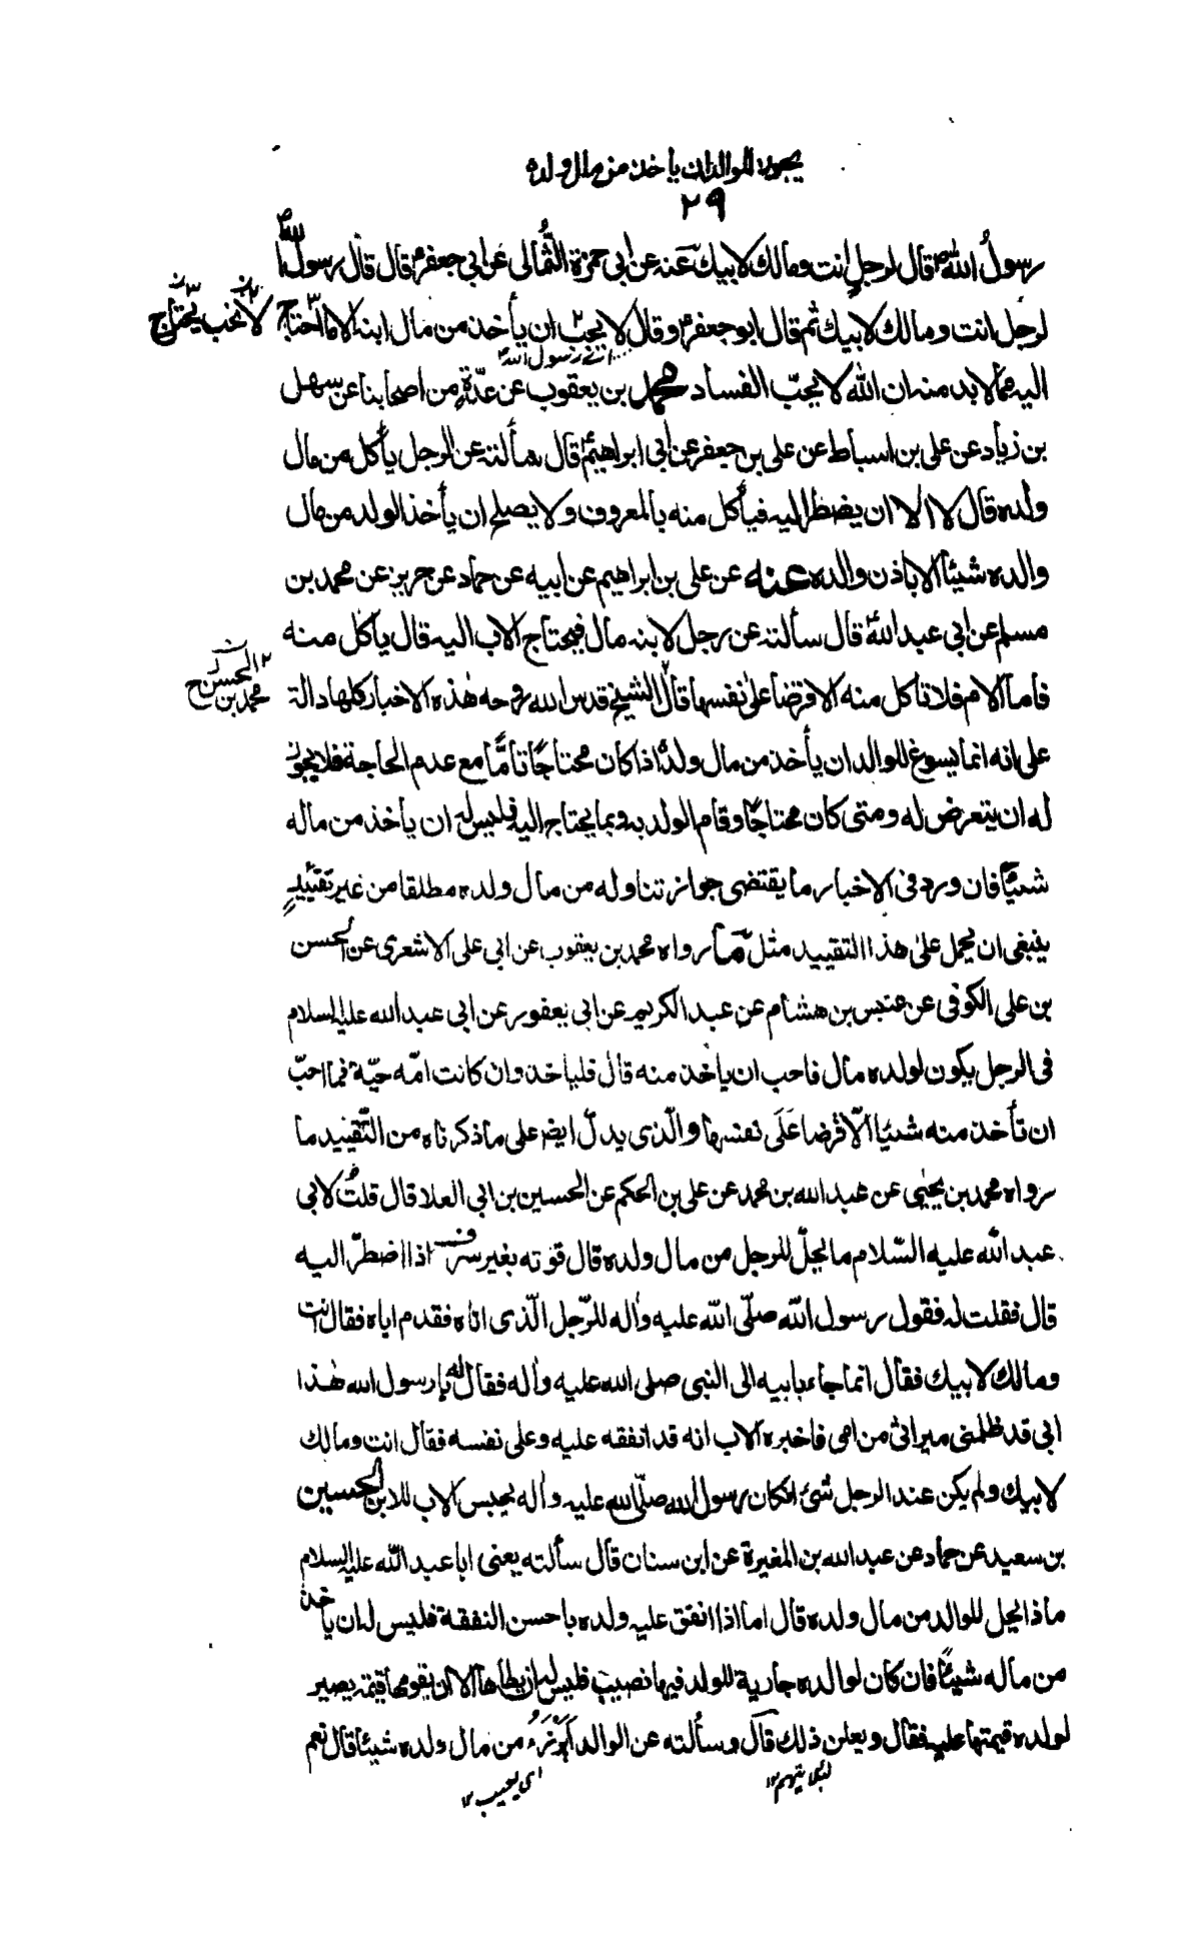 يجوز للوالد ان ياخذ من مال ولده
٢٩
رسولُ الله ص قال لرجلٍ انت ومالك لابيك عنه عن ابى حمزة الثُّمالى عن ابى جعفر ع قال قال رسول الله ص
لرجل انت ومالك لابيك ثم قال ابو جعفر ع وقال لا يحبّ ان يأخذ من مال ابنه الا ما احتاج
لا نحب يحتاج
اليه مما لابد منه ان الله لا يحبّ الفساد محمد بن يعقوب عن عدّةٍ من اصحابنا عن سهل
بن زياد عن على بن اسباط عن على بن جعفر عن ابى ابراهيم ع قال سألته عن الرجل يأكل من مال
ولده قال لا الا ان يضطر اليه فيأكل منه بالمعروف ولا يصلح ان يأخذ الولد من مال
والده شيئا الا باذن والده عنه عن على بن ابراهيم عن ابيه عن حماد عن حريز عن محمد بن
مسلم عن ابى عبد الله ع قال سألته عن رجل لابنه مال فيحتاج الاب اليه قال ياكل منه
فاما الام فلا تاكل منه الا قرضا على نفسها قال الشيخ قدس الله روحه هذه الاخبار كلها دالة
محمد بن الحسن
على انه انما يسوغ للوالد ان يأخذ من مال ولده اذا كان محتاجًا تامًّا مع عدم الحاجة فلا يجوز
له ان يتعرض له ومتى كان محتاجًا وقام الولد به وبما يحتاج اليه فليس له ان ياخذ من ماله
شيئًا فان ورد فى الاخبار ما يقتضى جواز تناوله من مال ولده مطلقا من غير تقييدٍ
ينبغى ان يحمل على هذا التقييد مثل ما رواه محمد بن يعقوب عن ابى على الاشعرى عن الحسن
بن على الكوفى عن عبيس بن هشام عن عبد الكريم عن ابى يعفور عن ابى عبد الله عليه السلام
فى الرجل يكون لولده مال فاحب ان ياخذ منه قال فلياخذ وان كانت امّه حيّة فما احبّ
ان تأخذ منه شيئا الّا قرضا عَلَى نفسها والّذى يدلّ ايضا على ما ذكرناه من التّقييد ما
رواه محمد بن يحيى عن عبد الله بن محمد عن على بن الحكم عن الحسين بن ابى العلا قال قلتُ لابى
عبد الله عليه السّلام ما يحلّ للرجل من مال ولده قال قوته بغير سرف اذا اضطرّ اليه
قال فقلت له فقول رسول الله صلّى الله عليه واله للرّجل الّذى اتاه فقدم اباه فقال انت
ومالك لابيك فقال انما جاء بابيه الى النبى صلى الله عليه واله فقال له يا رسول الله هذا
ابى قد ظلمنى ميراثى من امى فاخبره الاب انه قد انفقه عليه وعلى نفسه فقال انت ومالك
لابيك ولم يكن عند الرجل شئ افكان رسول الله صلّى الله عليه واله يحبس الاب للابن الحسين
بن سعيد عن حماد عن عبد الله بن المغيرة عن ابن سنان قال سألته يعنى ابا عبد الله عليه السلام
ماذا يحل للوالد من مال ولده قال اما اذا انفق عليه ولده باحسن النفقة فليس له ان ياخذ
من ماله شيئًا فان كان لوالده جارية للولد فيها نصيب فليس له ان يطأها الا ان يقومها قيمة يصير
لولده قيمتها عليه فقال ويعلن ذلك قال وسألته عن الوالد أيرزء من مال ولده شيئا قال نعم
لئلا يتهم ١٢
اى يصيب ١٢